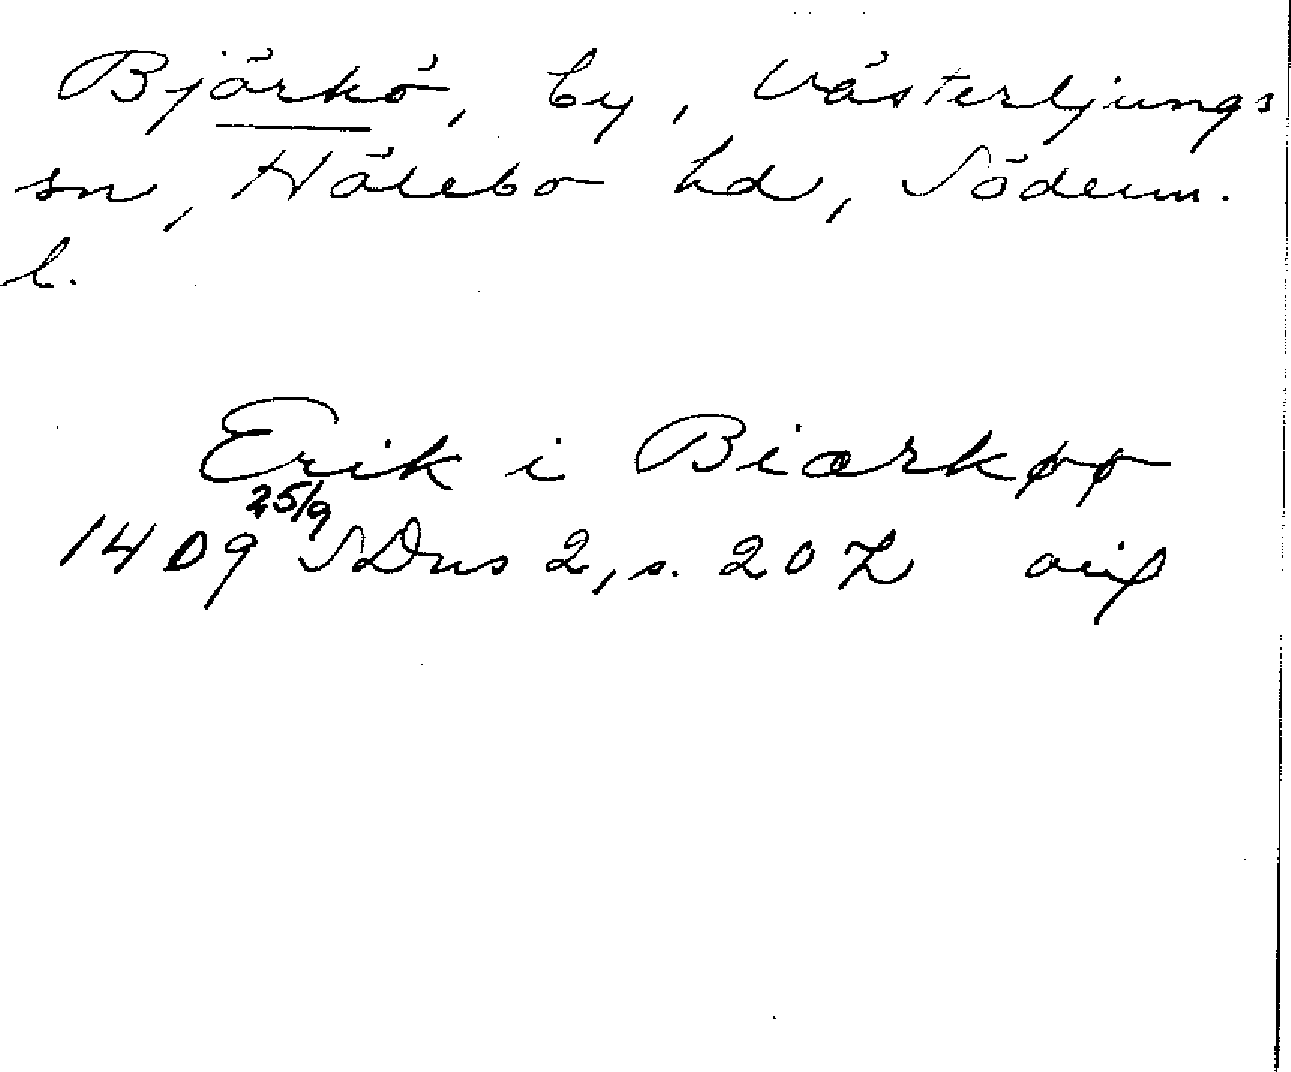 Björkö, by, Västerljungs
sn, Hölebo hd, Söderm.
l.
Erik i Biærkøø
1409 25/9 SDns 2, s. 207 orig